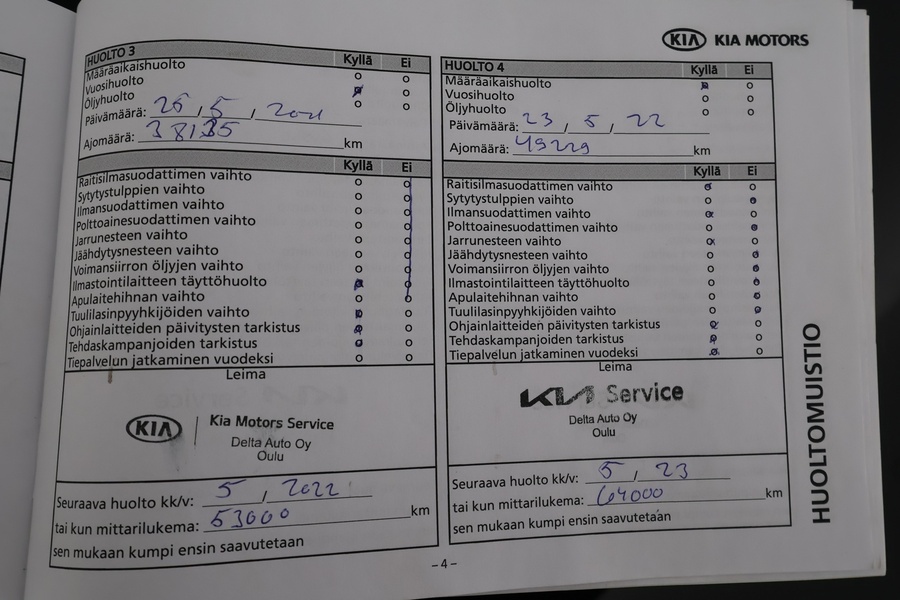 KIA KIA MOTORS
HUOLTO 3 Kyllä Ei
Määräaikaishuolto o o
Vuosihuolto o o
Öljyhuolto o o
Päivämäärä: 26 , 5 , 2021
Ajomäärä: 38135 km
Kyllä Ei
Raitisilmasuodattimen vaihto o o
Sytytystulppien vaihto o o
Ilmansuodattimen vaihto o o
Polttoainesuodattimen vaihto o o
Jarrunesteen vaihto o o
Jäähdytysnesteen vaihto o o
Voimansiirron öljyjen vaihto o o
Ilmastointilaitteen täyttöhuolto o o
Apulaitehihnan vaihto o o
Tuulilasinpyyhkijöiden vaihto o o
Ohjainlaitteiden päivitysten tarkistus o o
Tehdaskampanjoiden tarkistus o o
Tiepalvelun jatkaminen vuodeksi o o
Leima
KIA Kia Motors Service
Delta Auto Oy
Oulu
Seuraava huolto kk/v: 5 , 2022
tai kun mittarilukema: 53000 km
sen mukaan kumpi ensin saavutetaan
HUOLTO 4 Kyllä Ei
Määräaikaishuolto o o
Vuosihuolto o o
Öljyhuolto o o
Päivämäärä: 23 , 5 , 22
Ajomäärä: 49229 km
Kyllä Ei
Raitisilmasuodattimen vaihto o o
Sytytystulppien vaihto o o
Ilmansuodattimen vaihto o o
Polttoainesuodattimen vaihto o o
Jarrunesteen vaihto o o
Jäähdytysnesteen vaihto o o
Voimansiirron öljyjen vaihto o o
Ilmastointilaitteen täyttöhuolto o o
Apulaitehihnan vaihto o o
Tuulilasinpyyhkijöiden vaihto o o
Ohjainlaitteiden päivitysten tarkistus o o
Tehdaskampanjoiden tarkistus o o
Tiepalvelun jatkaminen vuodeksi o o
Leima
KIA Service
Delta Auto Oy
Oulu
Seuraava huolto kk/v: 5 , 23
tai kun mittarilukema: 64000 km
sen mukaan kumpi ensin saavutetaan
HUOLTOMUISTIO
– 4 –